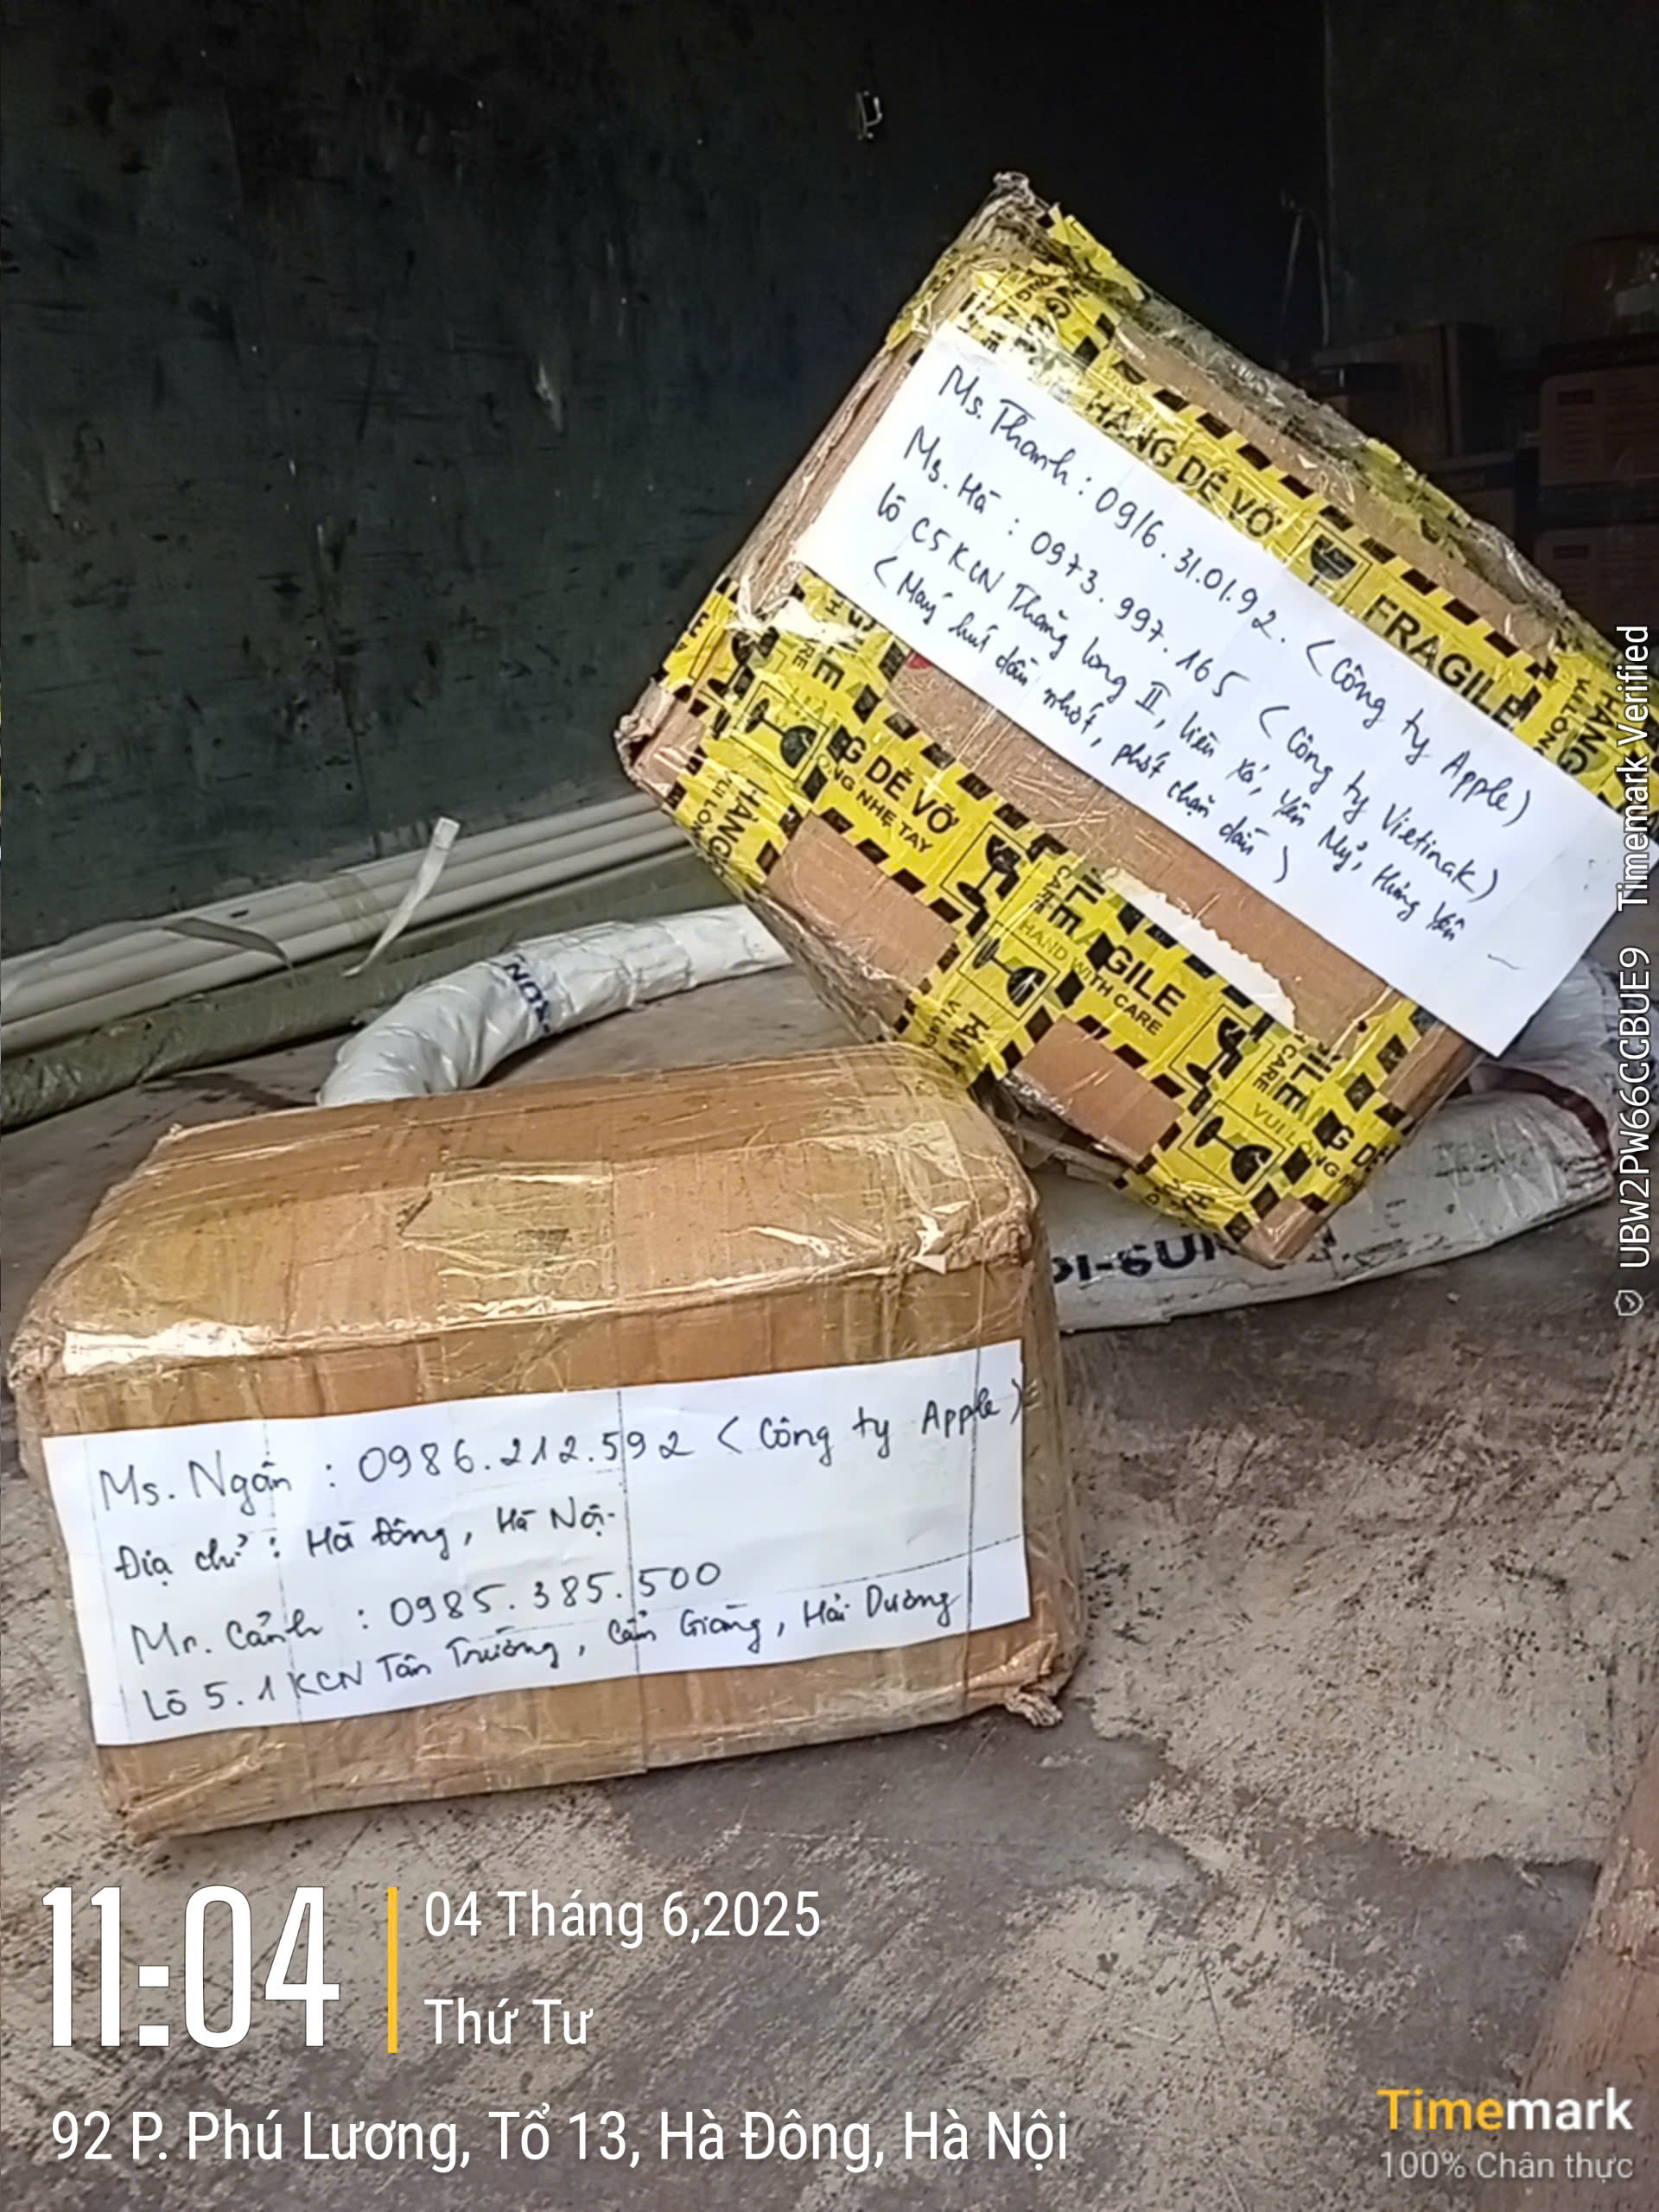 Ms. Thanh : 0916.31.01.92. (Công ty Apple)
Ms. Hà : 0973.997.165 (Công ty Vietinak)
Lô C5 KCN Thăng Long II, Liêu Xá, Yên Mỹ, Hưng Yên
(Máy hút dầu nhớt, phớt chặn dầu)
HÀNG DỄ VỠ
FRAGILE
G DỄ VỠ
ONG NHẸ TAY
GILE
HAND WITH CARE
VUI LÒNG
Ms. Ngân : 0986.212.592 (Công ty Apple)
Địa chỉ : Hà Đông, Hà Nội.
Mr. Cảnh : 0985.385.500
Lô 5.1 KCN Tân Trường, Cẩm Giàng, Hải Dương
11:04
04 Tháng 6,2025
Thứ Tư
92 P. Phú Lương, Tổ 13, Hà Đông, Hà Nội
Timemark
100% Chân thực
UBW2PW66CCBUE9 Timemark Verified